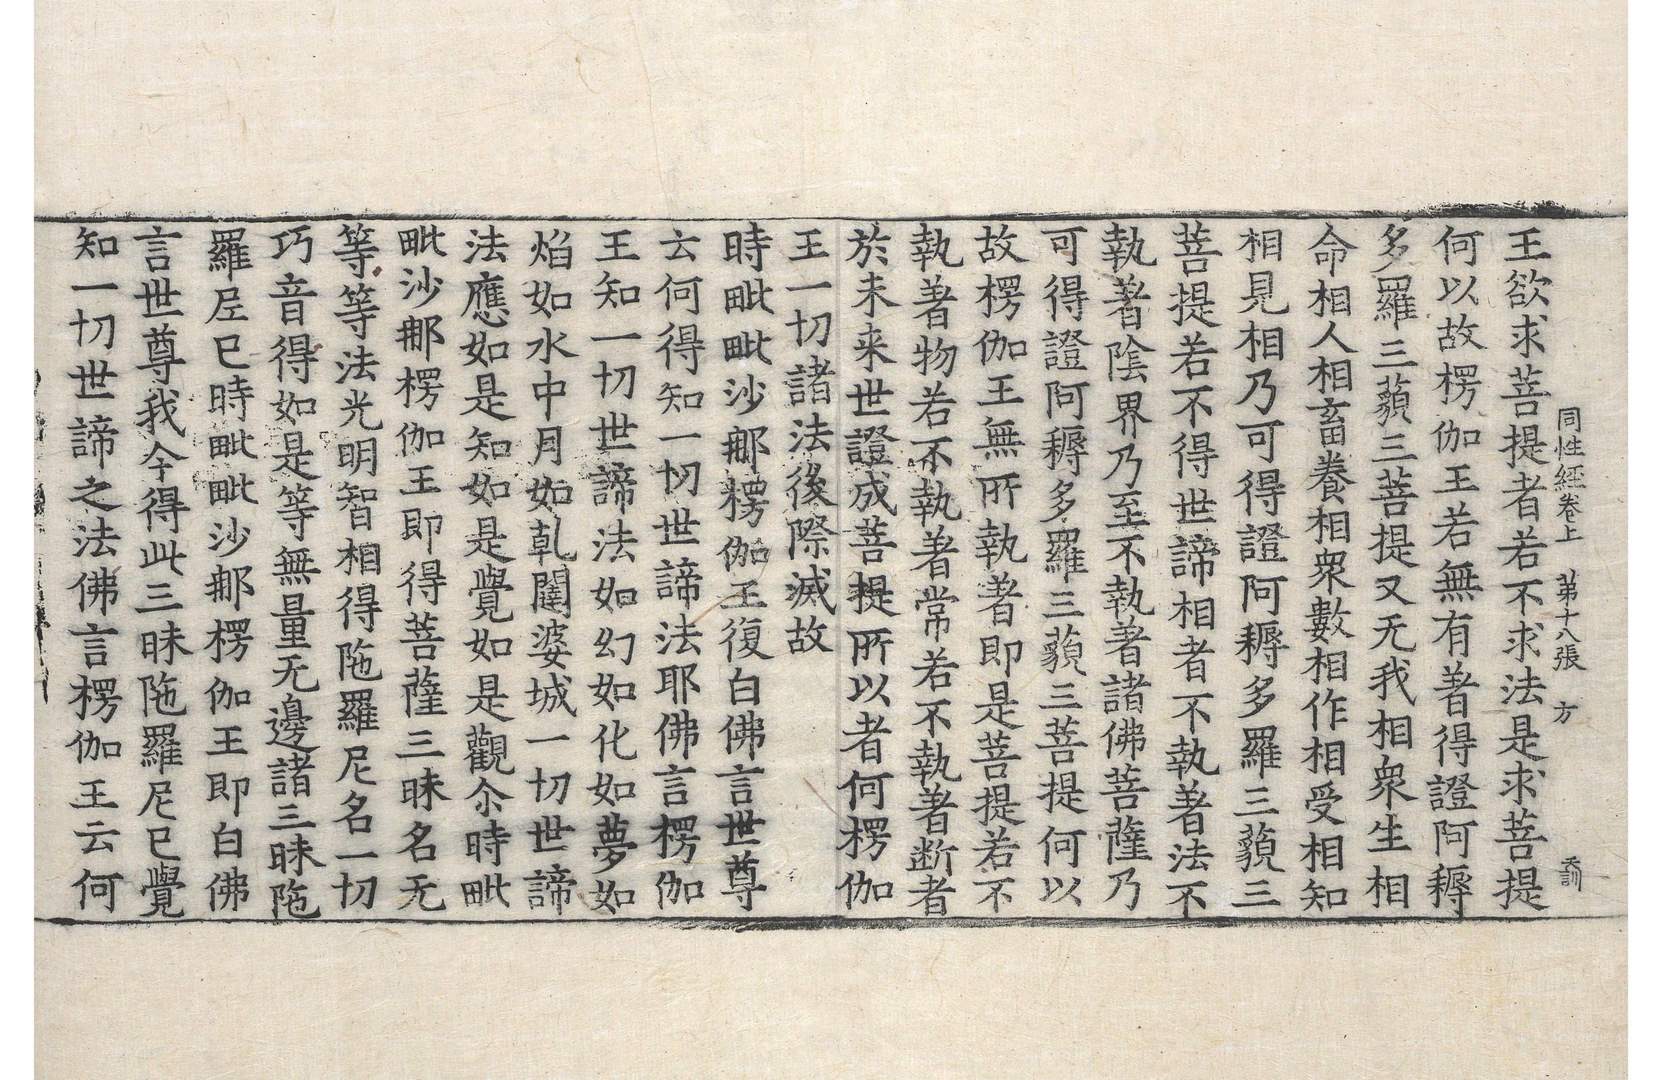 同性經卷上　第十八張　方
王欲求菩提者若不求法是求菩提
何以故楞伽王若無有著得證阿耨
多羅三藐三菩提又无我相衆生相
命相人相畜養相衆數相作相受相知
相見相乃可得證阿耨多羅三藐三
菩提若不得世諦相者不執著法不
執著陰界乃至不執著諸佛菩薩乃
可得證阿耨多羅三藐三菩提何以
故楞伽王無所執著即是菩提若不
執著物若不執著常若不執著断者
於未来世證成菩提所以者何楞伽
王一切諸法後際滅故
時毗毗沙郍楞伽王復白佛言世尊
云何得知一切世諦法耶佛言楞伽
王知一切世諦法如幻如化如夢如
焰如水中月如乹闥婆城一切世諦
法應如是知如是覺如是觀尒時毗
毗沙郍楞伽王即得菩薩三昧名无
等等法光明智相得陁羅尼名一切
巧音得如是等無量无邊諸三昧陁
羅尼已時毗毗沙郍楞伽王即白佛
言世尊我今得此三昧陁羅尼已覺
知一切世諦之法佛言楞伽王云何